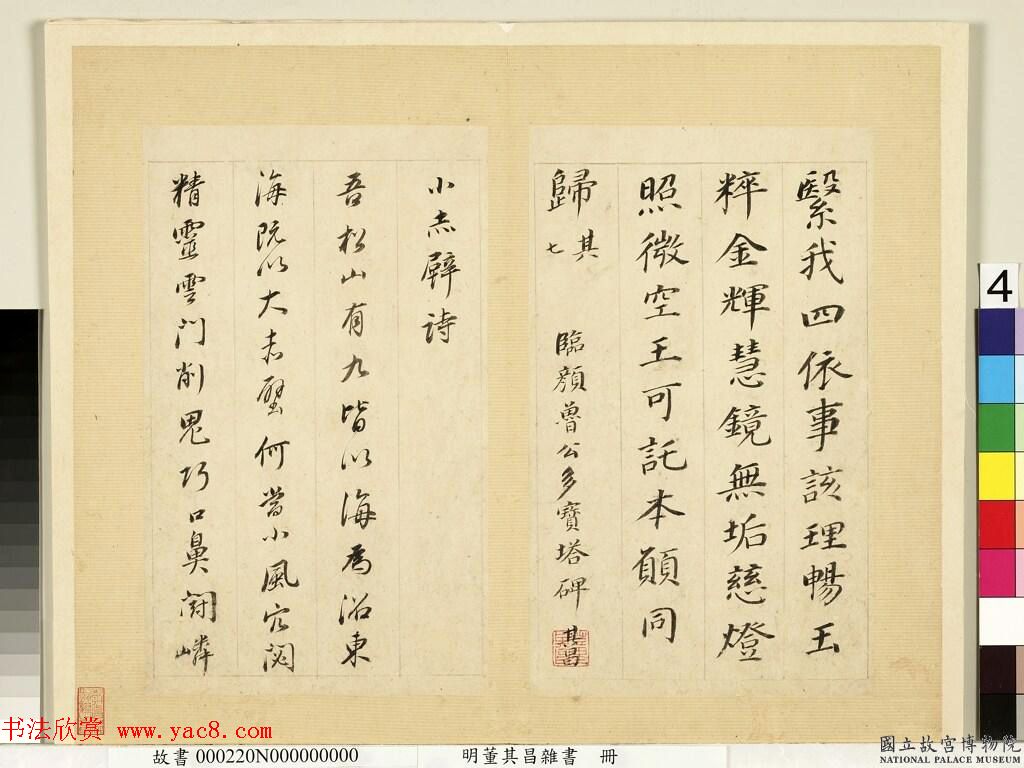 繄我四依事該理暢玉
粹金輝慧鏡無垢慈燈
照微空王可託本願同
歸其七
臨顏魯公多寶塔碑 其昌
小赤壁詩
吾松山有九皆以海為沼東
海既以大赤壁何當小風穴閟
精靈雲門削鬼巧口鼻闘嶙
4
书法欣赏 www.yac8.com
故書 000220N000000000 明董其昌雜書 冊
國立故宮博物院
NATIONAL PALACE MUSEUM